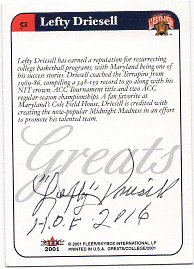 51
Lefty Driesell
Lefty Driesell has earned a reputation for resurrecting
college basketball programs, with Maryland being one of
his success stories. Driesell coached the Terrapins from
1969-86, compiling a 348-159 record to go along with his
NIT crown, ACC Tournament title and two ACC
regular-season championships. A fan favorite at
Maryland's Cole Field House, Driesell is credited with
creating the now-popular Midnight Madness in an effort
to promote his talented team.
Greats
"Lefty" Driesell
H.O.F. 2016
FLEER
2001
© 2001 FLEER/SKYBOX INTERNATIONAL LP
PRINTED IN U.S.A. GREATS/COLLEGE/2001